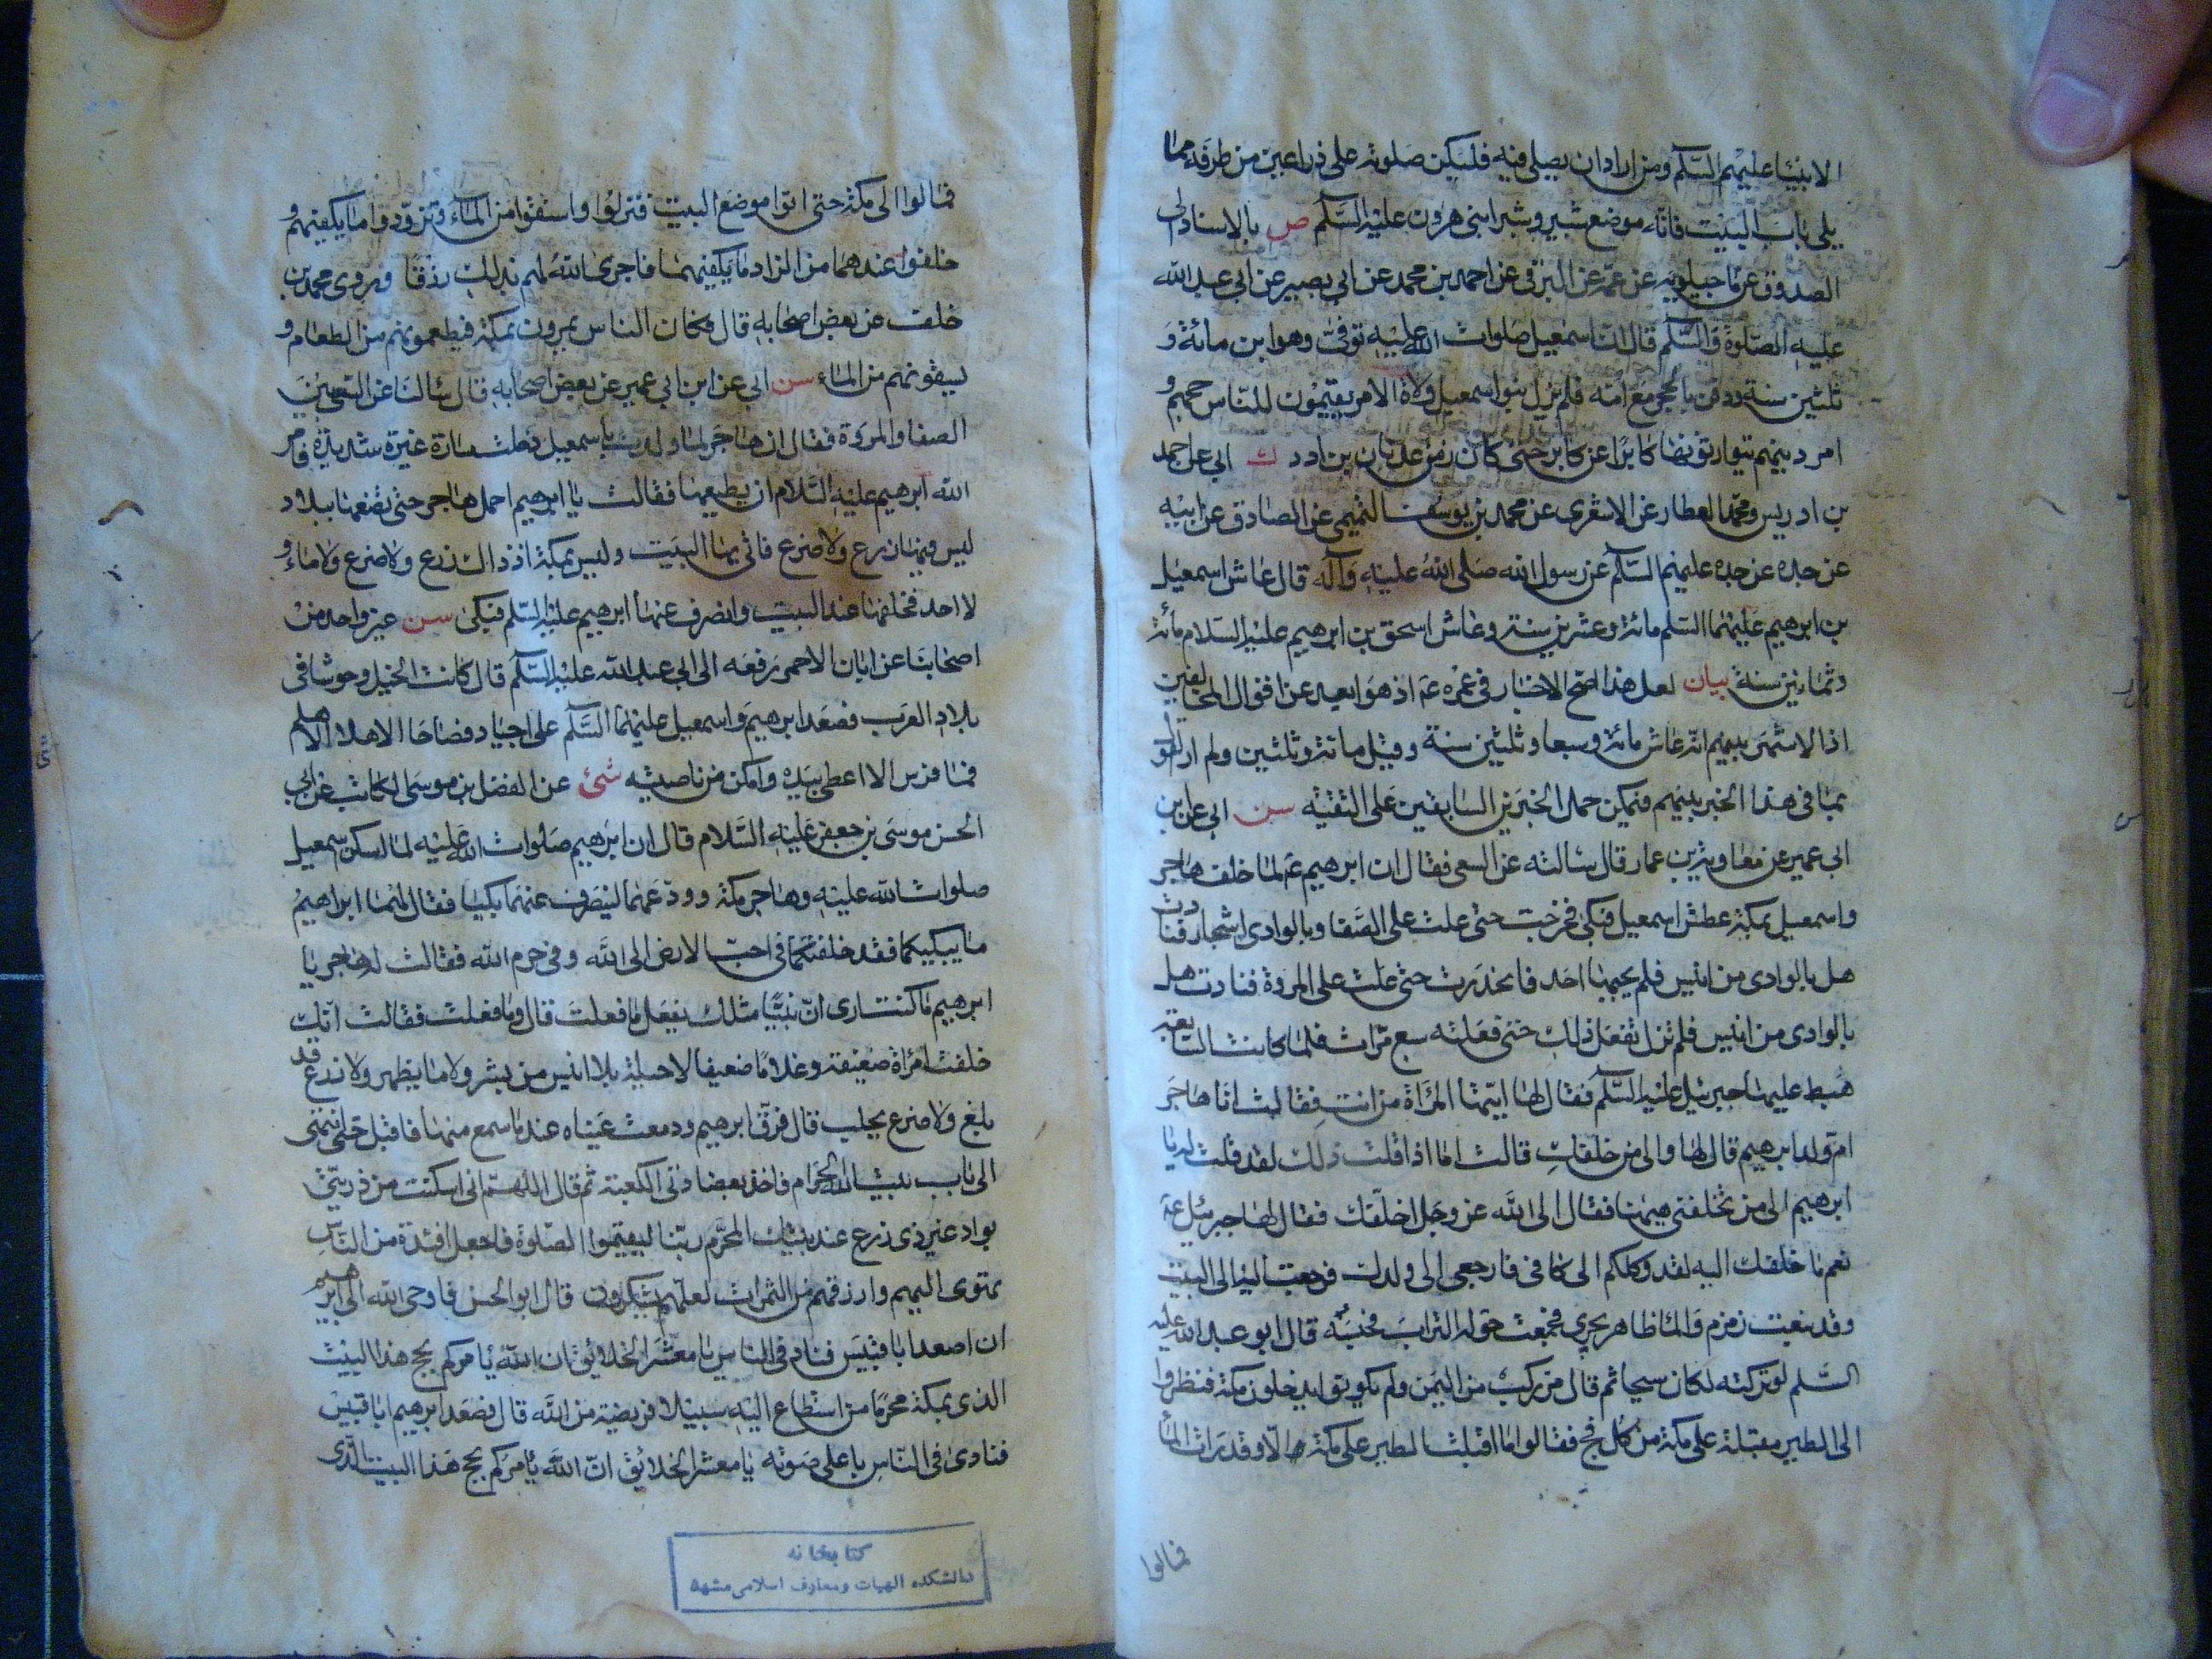 الانبيا عليهم السلم ومن اراد ان يصلى فيه فليكن صلوته على ذراعين من طرفه مما
يلى باب البيت فانه موضع شبير وشبر ابنى هرون عليه السلم ص بالاسناد الى
الصدوق عن ماجيلويه عن عمه عن البرقى عن احمد بن محمد عن ابى بصير عن ابى عبد الله
عليه الصلوة والسلم قال ان اسمعيل صلوات الله عليه توفى وهو ابن مائة و
ثلثين سنة ودفن بالحجر مع امه فلم يزل بنو اسمعيل ولاة الامر يقيمون للناس حجهم و
امر دينهم يتوارثونها كابرا عن كابر حتى كان زمن عدنان بن ادد ك ابى عن احمد
بن ادريس ومحمد العطار عن الاشعرى عن محمد بن يوسف التميمى عن الصادق عن ابيه
عن جده عن جده عليهم السلم عن رسول الله صلى الله عليه وآله قال عاش اسمعيل
بن ابرهيم عليهما السلم مائة وعشرين سنة وعاش اسحق بن ابرهيم عليه السلام مائة
وثمانين سنة بيان لعل هذا اصح الاخبار فى عمره عم اذ هو ابعد عن اقوال المخالفين
اذ الاشهر بينهم انه عاش مائة وسبعا وثلثين سنة وقيل مائة وثلثين ولم ار القول
بما فى هذا الخبر بينهم فيمكن حمل الخبرين السابقين على التقية سن ابى عن ابن
ابى عمير عن معاوية بن عمار قال سالته عن السعى فقال ان ابرهيم عم لما خلف هاجر
واسمعيل بمكة عطش اسمعيل فبكى فخرجت حتى علت على الصفا وبالوادى اشجار فنادت
هل بالوادى من انيس فلم يجبها احد فانحدرت حتى علت على المروة فنادت هل
بالوادى من انيس فلم تزل تفعل ذلك حتى فعلته سبع مرات فلما كانت السابعة
هبط عليها جبرئيل عليه السلم فقال لها ايتها المرأة من انت فقالت انا هاجر
ام ولد ابرهيم قال لها والى من خلفك قالت اما اذا قلت ذلك لقد قلت له يا
ابرهيم الى من تخلفنى هيهنا فقال الى الله عز وجل اخلفك فقال لها جبرئيل عم
نعم ما خلفك اليه لقد وكلكم الى كافى فارجعى الى ولدك فرجعت اليه الى البيت
وقد نبعت زمزم والما ظاهر يجرى فجمعت حوله التراب فحبسه قال ابو عبد الله عليه
السلم لو تركته لكان سيحا ثم قال مر ركب من اليمن ولم يكونوا يدخلون مكة فنظروا
الى الطير مقبلة على مكة من كل فج فقالوا ما اقبلت الطير على مكة الا وقد رات الما
فمالوا
فمالوا الى مكة حتى اتوا موضع البيت فنزلوا واستقوا من الماء وتزودوا ما يكفيهم و
خلفوا عندهما من الزاد ما يكفيهما فاجرى الله لهم بذلك رزقا وروى محمد بن
خلف عن بعض اصحابه قال فكان الناس يمرون بمكة فيطعمونهم من الطعام و
يسقونهم من الماء سن ابى عن ابن ابى عمير عن بعض اصحابه قال سالنا عن السعى بين
الصفا والمروة فقال ان هاجر لما ولدت باسمعيل دخلت سارة غيرة شديدة فامر
الله ابرهيم عليه السلام ان يطيعها فقالت يا ابرهيم احمل هاجر حتى تضعها ببلاد
ليس فيها زرع ولا ضرع فاتى بها البيت وليس بمكة اذ ذاك زرع ولا ضرع ولا ماء و
لا احد فخلفها عند البيت وانصرف عنها ابرهيم عليه السلم فبكى سن غير واحد من
اصحابنا عن ابان الاحمر رفعه الى ابى عبد الله عليه السلم قال كانت الخيل وحوشا فى
بلاد العرب فصعد ابرهيم واسمعيل عليهما السلم على اجياد فصاحا الا هلا الا هلم
فما فرس الا اعطى بيده وامكن من ناصيته شئ عن الفضل بن موسى الكاتب عن ابى
الحسن موسى بن جعفر عليه السلام قال ان ابرهيم صلوات الله عليه لما اسكن اسمعيل
صلوات الله عليه وهاجر مكة وودعهما لينصرف عنهما بكيا فقال لهما ابراهيم
ما يبكيكما فقد خلفتكما فى احب الارض الى الله وفى حرم الله فقالت له هاجر يا
ابرهيم ما كنت ارى ان نبيا مثلك يفعل ما فعلت قال وما فعلت فقالت انك
خلفت امرأة ضعيفة وغلاما ضعيفا لا حيلة بلا انيس من بشر ولا ما يظهر ولا زرع قد
بلغ ولا ضرع يحلب قال فرق ابرهيم ودمعت عيناه عند ما سمع منها فاقبل حتى انتهى
الى باب بيت الله الحرام فاخذ بعضادتى الكعبة ثم قال اللهم انى اسكنت من ذريتى
بواد غير ذى زرع عند بيتك المحرم ربنا ليقيموا الصلوة فاجعل افئدة من الناس
تهوى اليهم وارزقهم من الثمرات لعلهم يشكرون قال ابو الحسن فاوحى الله الى ابرهيم
ان اصعد ابا قبيس فناد فى الناس يا معشر الخلائق ان الله يامركم بحج هذا البيت
الذى بمكة محرما من استطاع اليه سبيلا فريضة من الله قال فصعد ابرهيم ابا قبيس
فنادى فى الناس باعلى صوته يا معشر الخلائق ان الله يامركم بحج هذا البيت الذى
كتابخانه
دانشكده الهيات ومعارف اسلامى مشهد